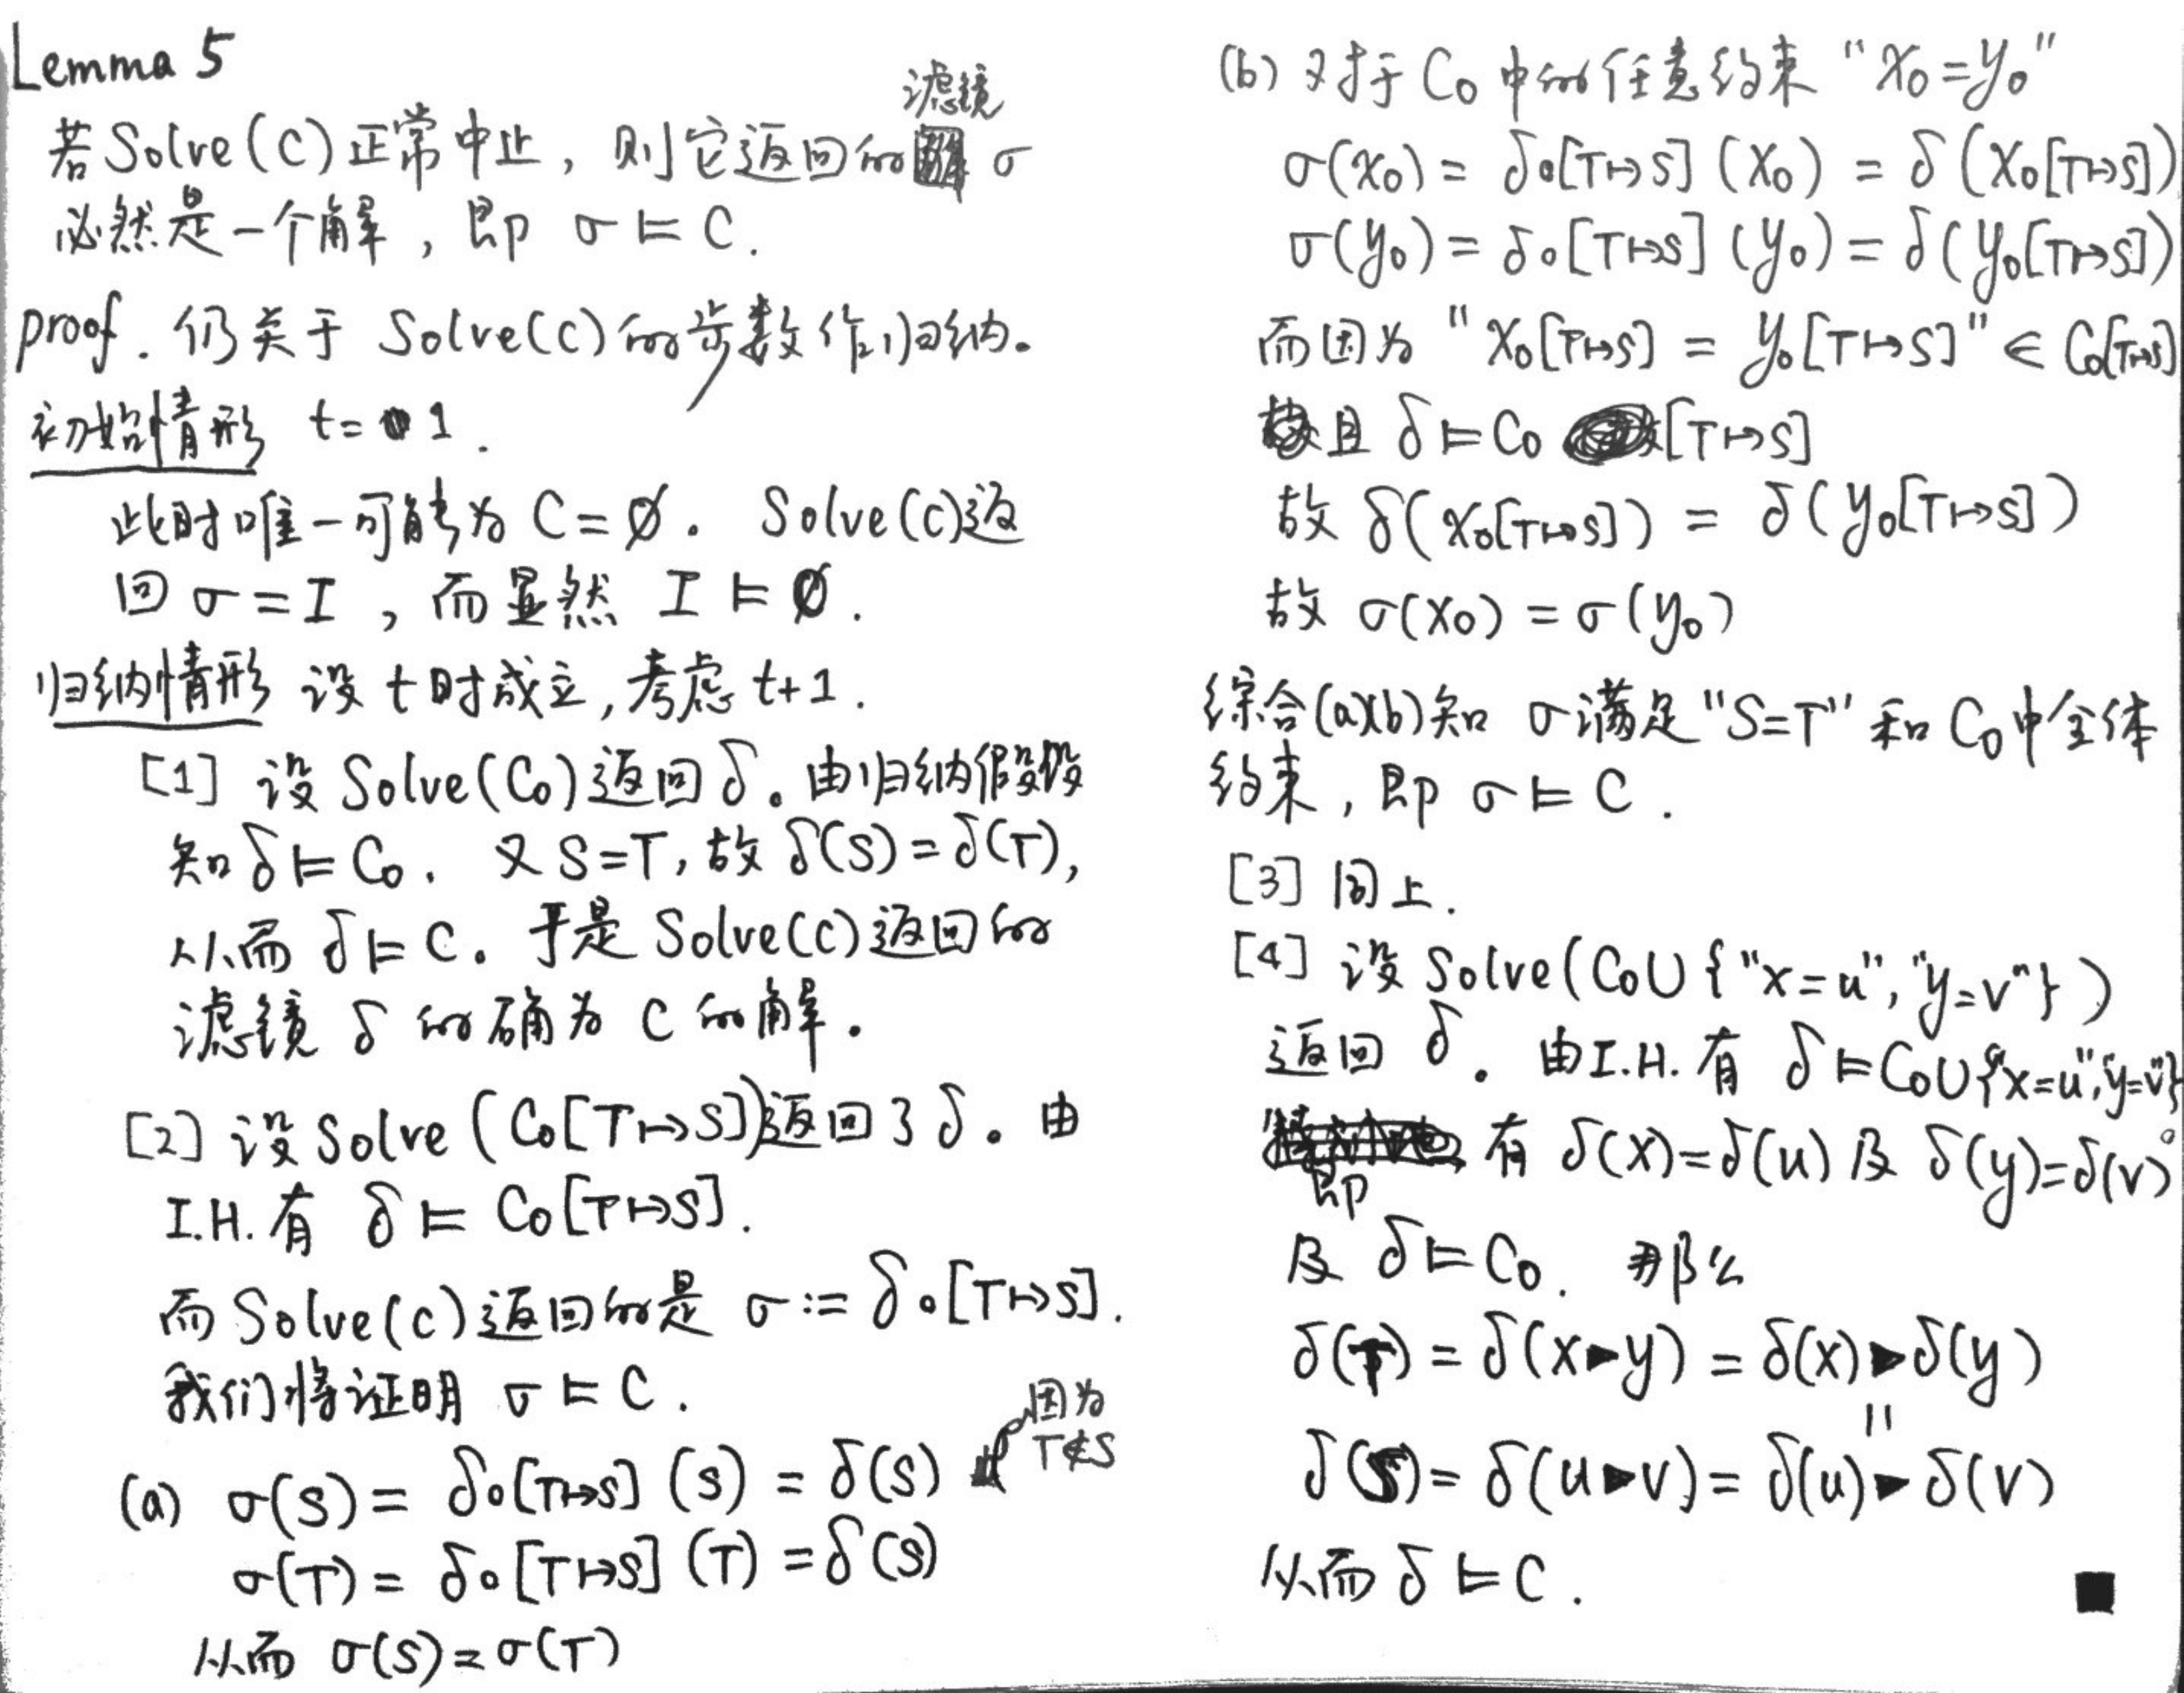 Lemma 5
滤镜
若Solve(C)正常中止，则它返回的 σ
必然是一个解，即 σ ⊨ C.
proof. 仍关于 Solve(C)的步数作归纳。
初始情形 t= 1.
此时唯一可能为 C=∅。 Solve(C)返
回 σ=I ，而显然 I ⊨ ∅.
归纳情形 设 t 时成立,考虑 t+1.
[1] 设 Solve(C₀)返回 δ。由归纳假设
知 δ ⊨ C₀. 又 S=T,故 δ(S)=δ(T),
从而 δ ⊨ C。于是 Solve(C)返回的
滤镜 δ 的确为 C 的解。
[2] 设 Solve(C₀[T↦S])返回了 δ。由
I.H.有 δ ⊨ C₀[T↦S].
而 Solve(C)返回的是 σ:=δ∘[T↦S].
我们将证明 σ ⊨ C.
因为
T∉S
(a) σ(S)= δ∘[T↦S] (S) = δ(S)
σ(T)= δ∘[T↦S] (T) =δ(S)
从而 σ(S)=σ(T)
(b) 又对于 C₀ 中的任意约束 "X₀=y₀"
σ(X₀)= δ∘[T↦S] (X₀) = δ(X₀[T↦S])
σ(y₀)= δ∘[T↦S] (y₀)= δ(y₀[T↦S])
而因为 "X₀[T↦S] = y₀[T↦S]" ∈ C₀[T↦S]
且 δ ⊨ C₀ [T↦S]
故 δ(X₀[T↦S]) = δ(y₀[T↦S])
故 σ(X₀) = σ(y₀)
综合(a)(b)知 σ满足"S=T" 和 C₀中全体
约束，即 σ ⊨ C.
[3] 同上.
[4] 设 Solve(C₀∪{"x=u","y=v"})
返回 δ。由I.H.有 δ ⊨ C₀∪{"x=u","y=v"}。
即 有 δ(x)=δ(u) 及 δ(y)=δ(v)
及 δ ⊨ C₀. 那么
δ(T) = δ(x▶y) = δ(x)▶δ(y)
॥
δ(S)= δ(u▶v)= δ(u)▶δ(v)
从而 δ ⊨ C. ■